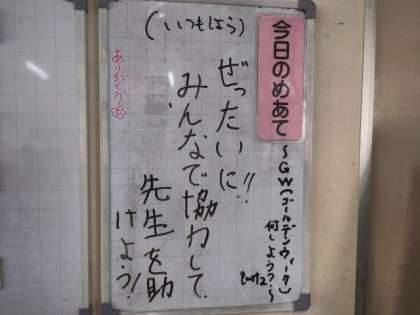 今日のめあて
～GW(ゴールデンウィーク)
何しよう？～
ぜったいに!!
みんなで協力して
先生を助
けよう!
(いつもしよう)
ありがとう